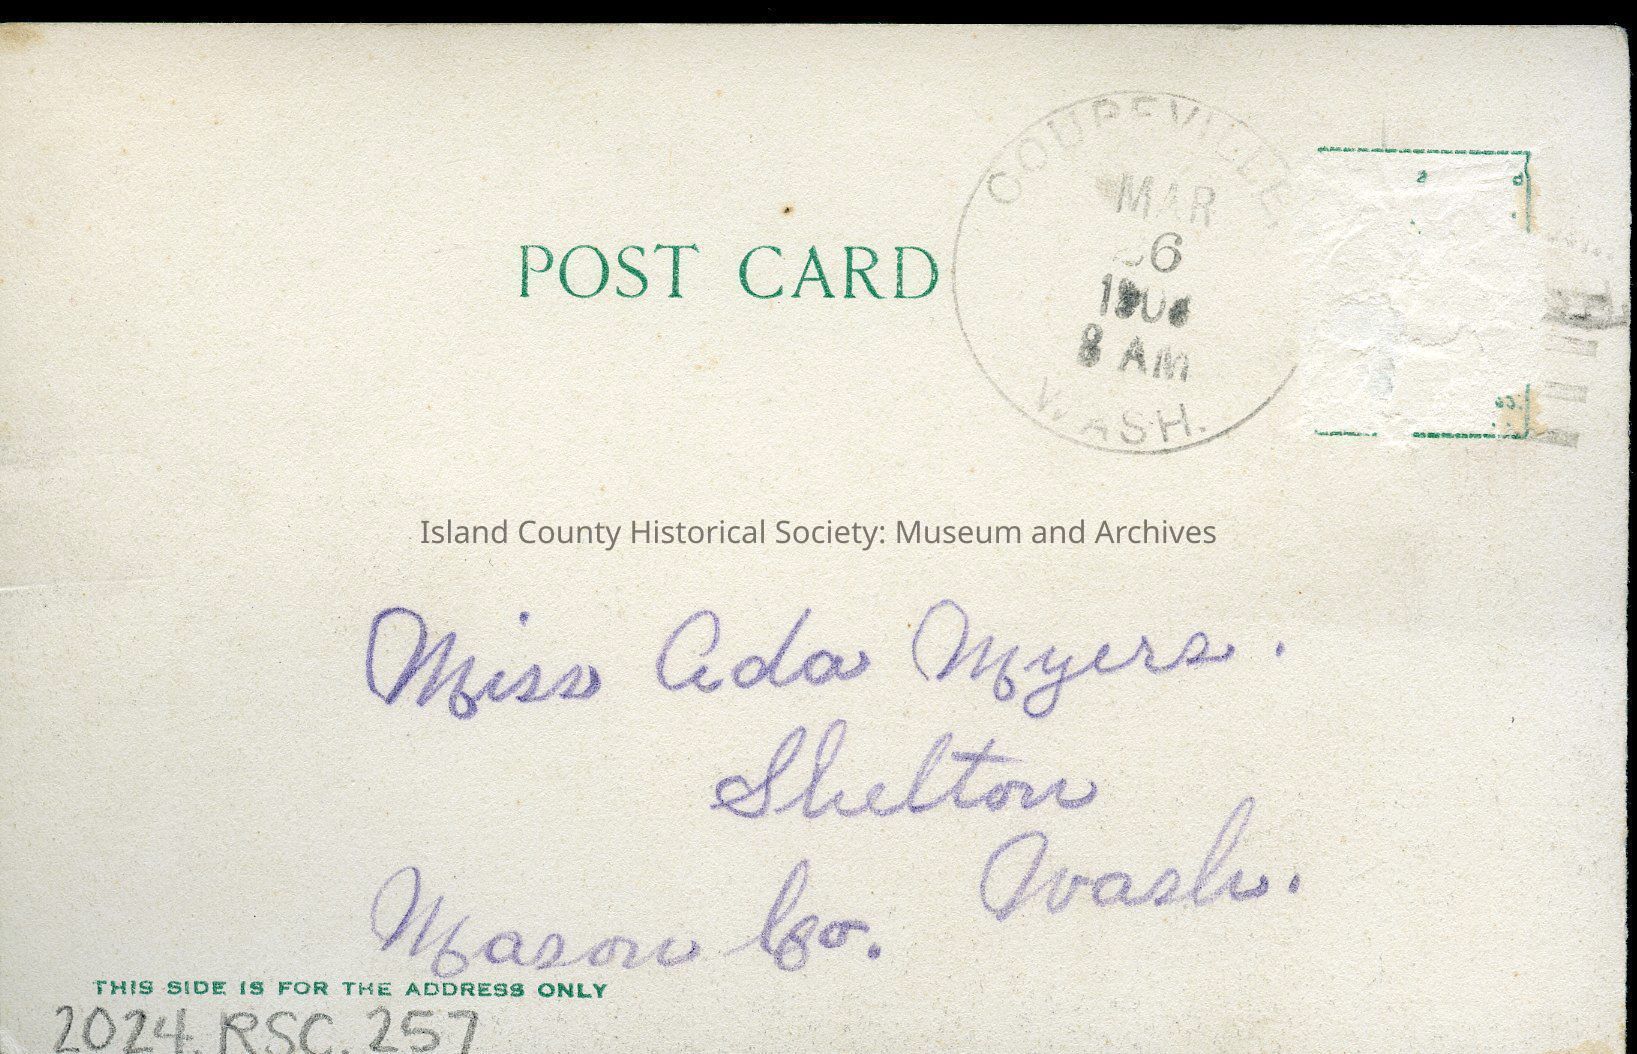 COUPEVILLE
MAR
6
8 AM
WASH.
POST CARD
Island County Historical Society: Museum and Archives
Miss Ada Myers.
Shelton
Wash.
Mason Co.
THIS SIDE IS FOR THE ADDRESS ONLY
2024.RSC.257